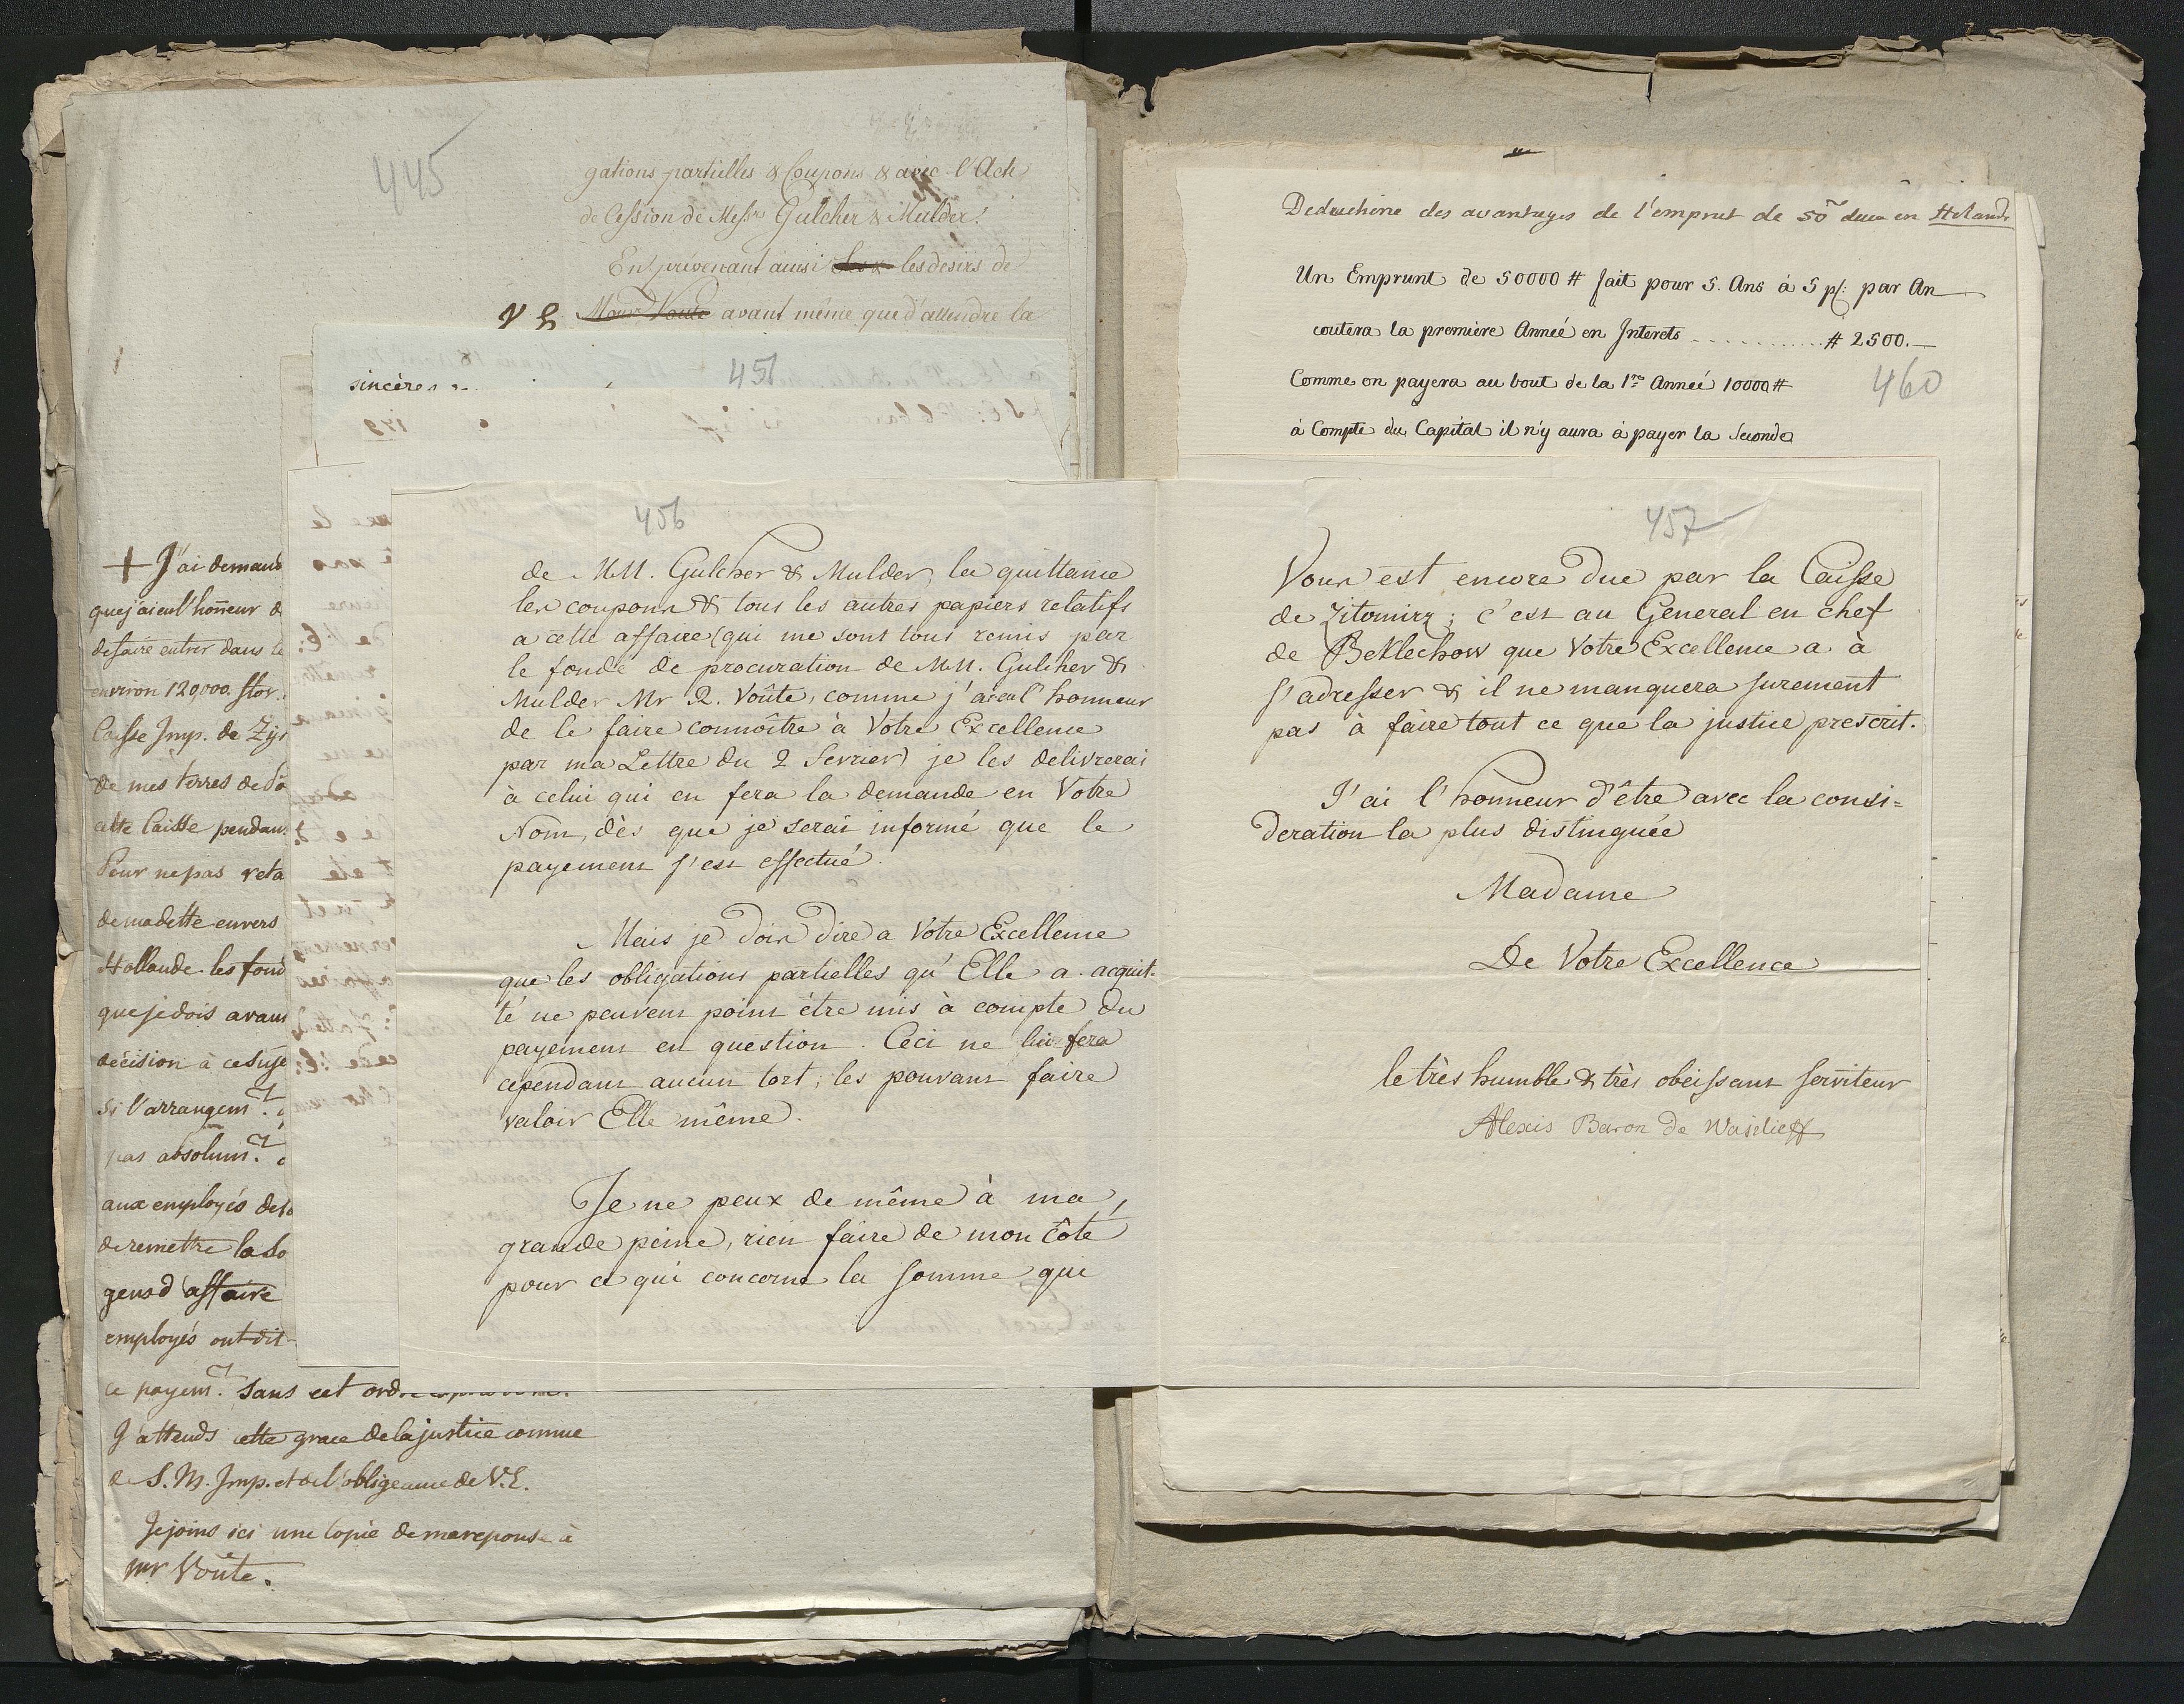 445
gations partielles & Coupons & avec l'Acte
de Cession de Messrs Gulcher & Mulder.
En prévenant ainsi les desirs de
V E Monsr Voute avant même que d'attendre la
451
sincères
+ J'ai demand
que j'ai eu l'honneur d
de faire entrer dans le
environ 120,000. flor.
Caisse Imp. de Zyt
de mes terres de
cette Caisse pendan
Pour ne pas reta
de ma dette envers
Hollande les fond
que je dois avan
décision à ce suje
si l'arrangemt.
pas absolumt.
aux employés de
de remettre la so
gens d'affaire
employés ont dit
ce payemt. sans cet ord
J'attends cette grace de la justice connue
de S. M. Imp. et de l'obligeance de V. E.
Je joins ici une copie de ma reponse à
Mr Voûte.
456
de MM. Gulcher & Mulder, la quittance
les coupons & tous les autres papiers relatifs
a cette affaire (qui me sont tous remis par
le fondé de procuration de MM. Gulcher &
Mulder Mr R. Voûte, comme j'ai eu l'honneur
de le faire connoître à Votre Excellence
par ma Lettre du 2 Fevrier) je les delivrerai
à celui qui en fera la demande en Votre
Nom, dès que je serai informé que le
payement s'est effectué.
Mais je dois dire a Votre Excellence
que les obligations partielles qu'Elle a acquit-
té ne peuvent point être mis à compte du
payement en question. Ceci ne lui fera
cependant aucun tort, les pouvant faire
valoir Elle même.
Je ne peux de même à ma
grande peine, rien faire de mon côté
pour ce qui concerne la somme qui
Dedouchine des avantages de l'emprut de 50m duca en Holande
Un Emprunt de 50000 # fait pour 5. Ans à 5 p%: par An
coutera la première Anneé en Interets ............ # 2500.—
Comme on payera au bout de la 1re Anneé 10000 #
460
à Compte du Capital il n'y aura à payer la Seconde
457
Vous est encore due par la Caisse
de Zitomirz; c'est au General en chef
de Beklechow que Votre Excellence a à
s'adresser & il ne manquera surement
pas à faire tout ce que la justice prescrit.
J'ai l'honneur d'être avec la consi=
deration la plus distinguée
Madame
De Votre Excellence
le très humble & très obeissant serviteur
Alexis Baron de Wasilieff